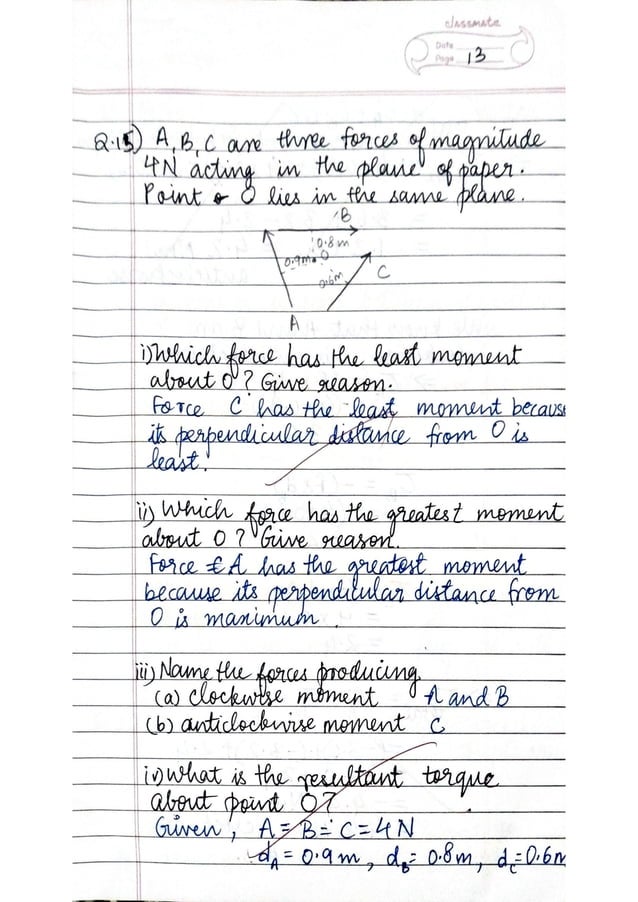 classmate
Date
Page 13
Q.15) A, B, C are three forces of magnitude
4N acting in the plane of paper.
Point O lies in the same plane.
B
0.8 m
0.9m O
0.6m C
A
i) Which force has the least moment
about O? Give reason.
Force C has the least moment because
its perpendicular distance from O is
least.
ii) Which force has the greatest moment
about O? Give reason.
Force A has the greatest moment
because its perpendicular distance from
O is maximum.
iii) Name the forces producing
(a) clockwise moment A and B
(b) anticlockwise moment C
iv) What is the resultant torque
about point O?
Given, A = B = C = 4 N
dA = 0.9 m, dB = 0.8m, dC = 0.6m